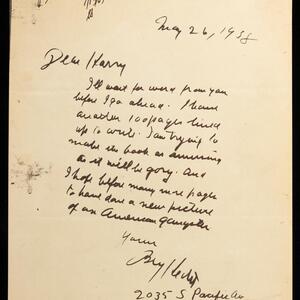 May 26, 1958
Dear Harry
I'll wait for word from you
before I go ahead. I have
another 100 pages lined
up to write. I am trying to
make the book as amusing
as it will be gory. And
I hope before many more pages
to have done a new picture
of an American gangster
Yours
Ben Hecht
2035 S Pacific Av